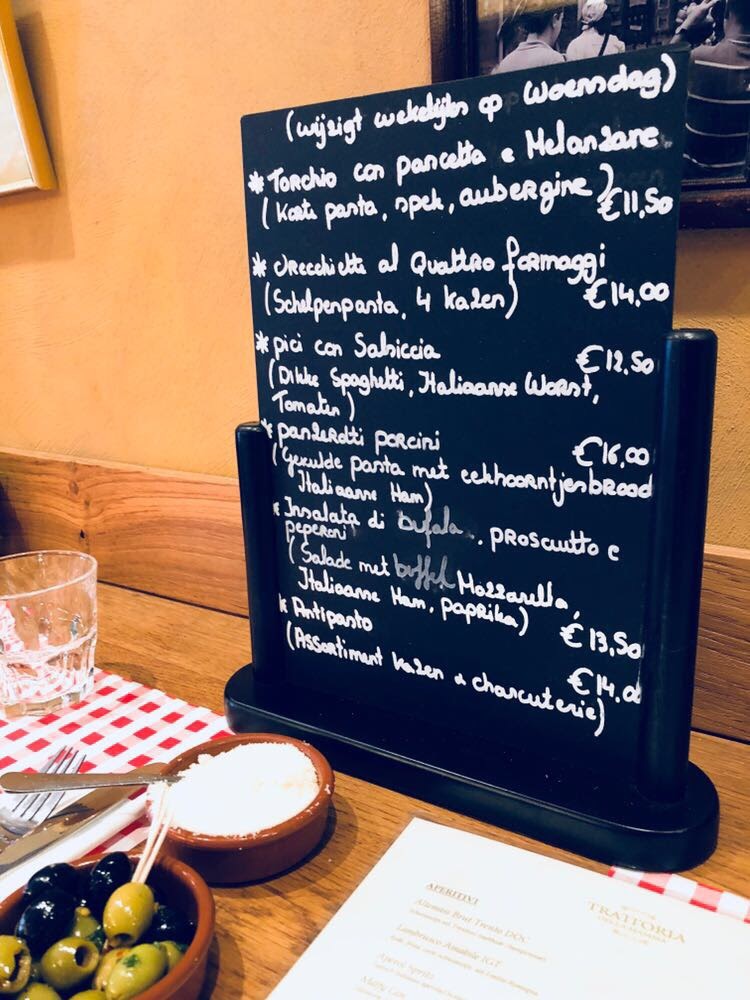 (wijzigt wekelijks op Woensdag)
* Torchio con pancetta e Melanzane
(Korte pasta, spek, aubergine) €11,50
* Orecchiette al Quattro formaggi
(Schelpenpasta, 4 kazen) €14,00
* pici con Salsiccia €12,50
(Dikke Spaghetti, Italiaanse Worst,
Tomaten)
* panzerotti porcini €16,00
(Gevulde pasta met eekhoorntjesbrood
Italiaanse Ham)
* Insalata di bufala, prosciutto e
peperoni
(Salade met buffel Mozzarella,
Italiaanse Ham, paprika) €13,50
* Antipasto €14.0
(Assortiment kazen & charcuterie)
APERITIVI
Altemasi Brut Trento DOC
Lambrusco Amabile IGT
Aperol Spritz
TRATTORIA